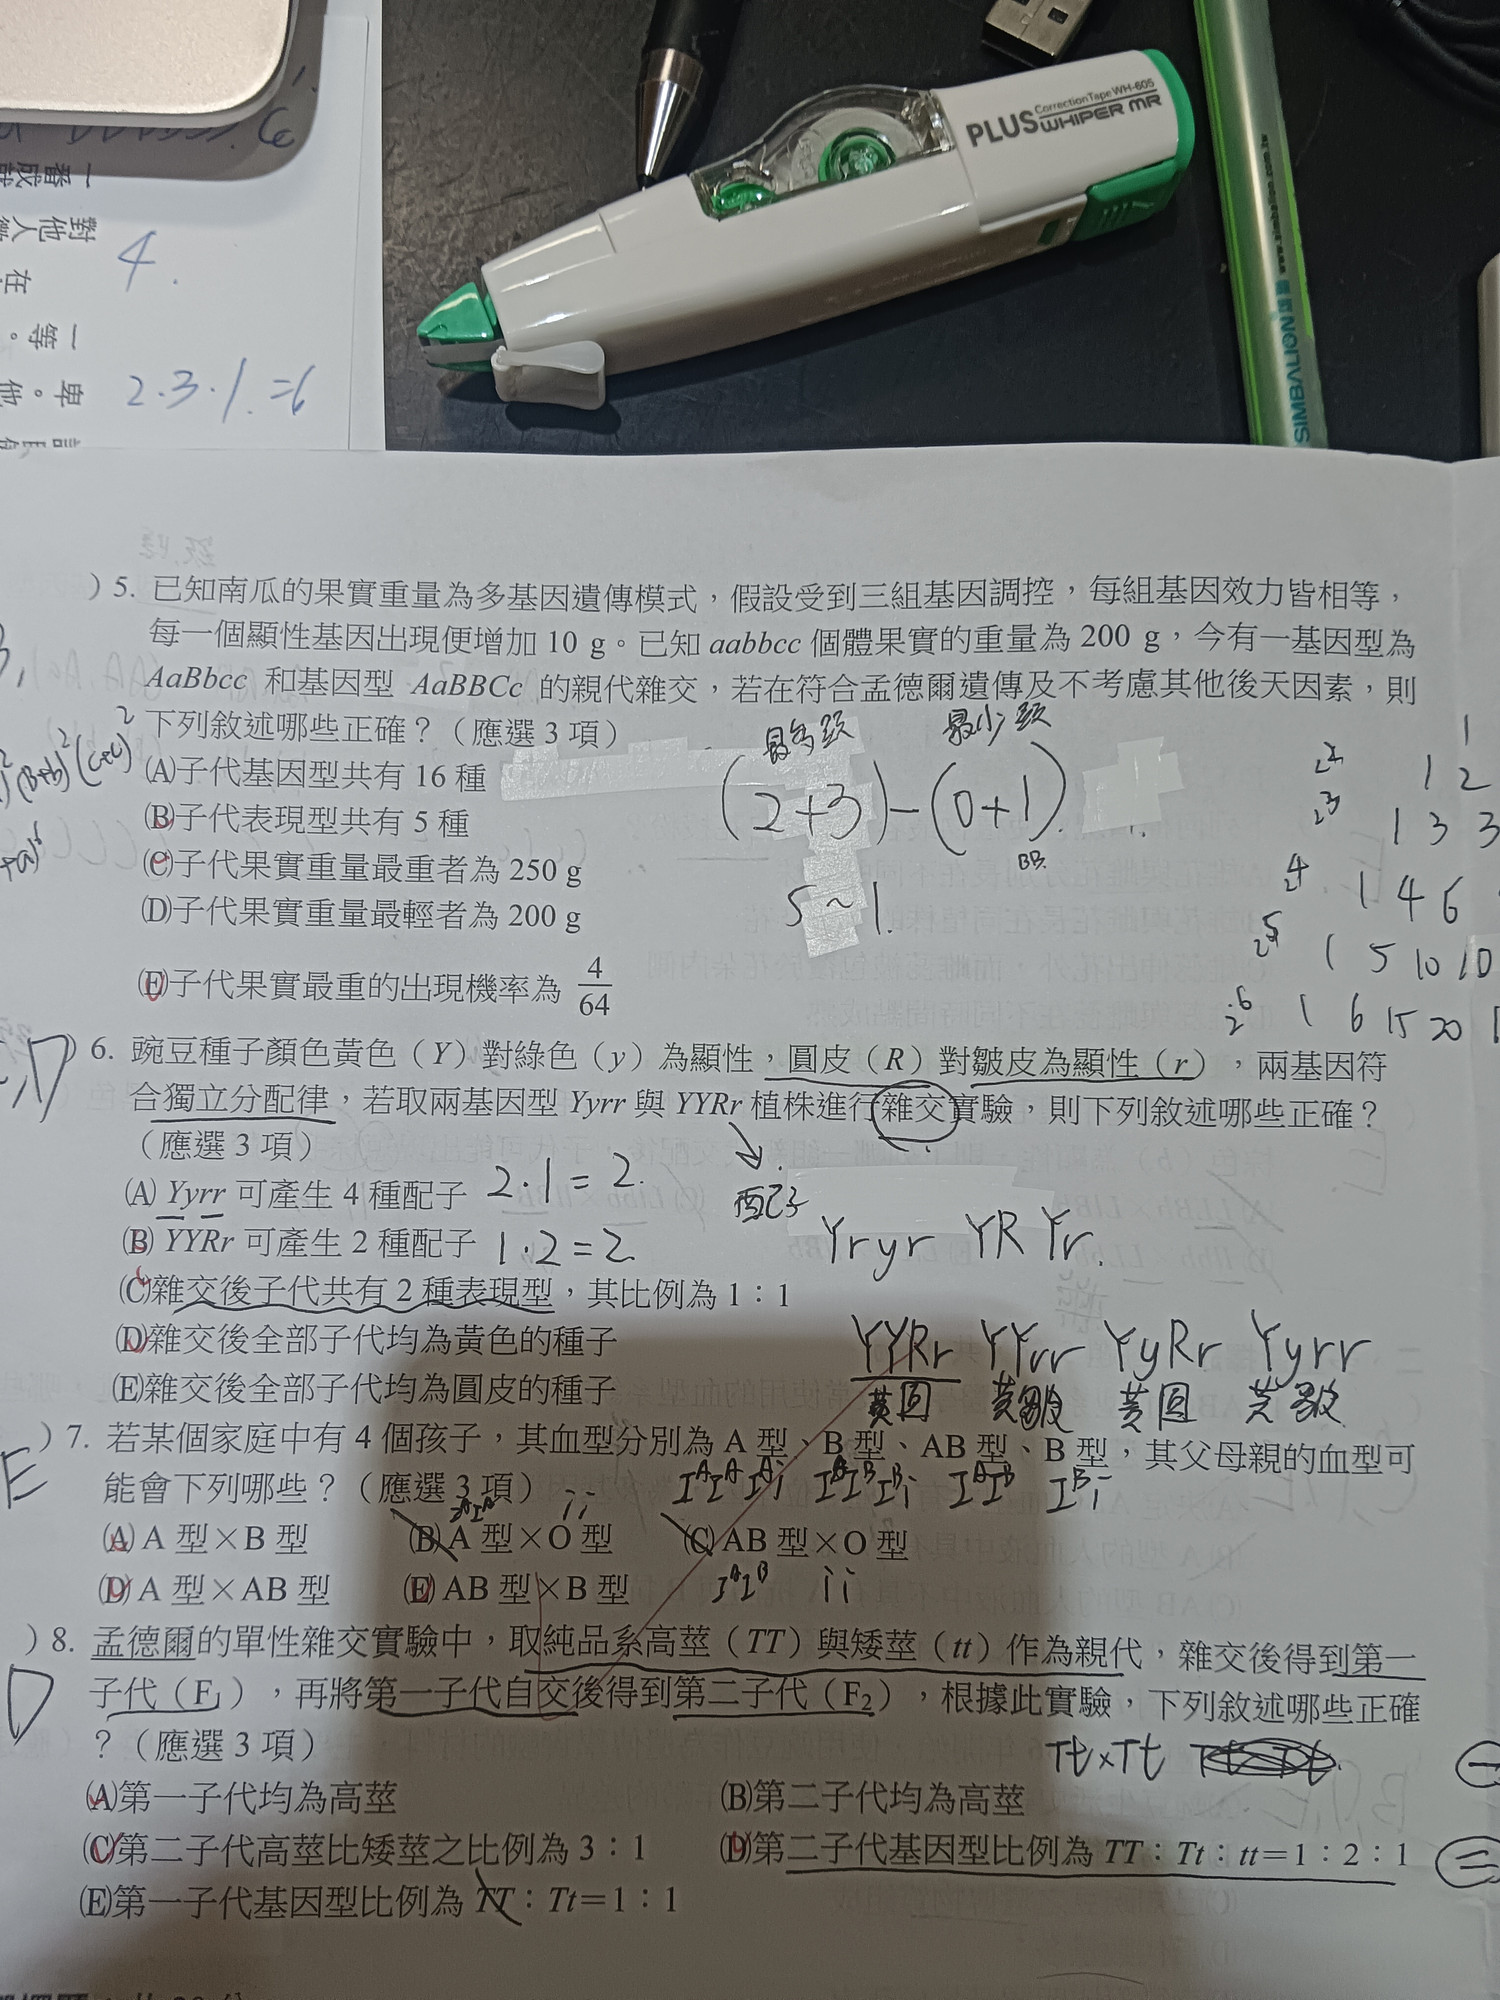 4.
2.3.1.=6
一番成
對他人
在
一等。
卑。他
PLUS CorrectionTape WH-605
WHIPER MR
SIMBALION
)5. 已知南瓜的果實重量為多基因遺傳模式，假設受到三組基因調控，每組基因效力皆相等，
每一個顯性基因出現便增加 10 g。已知 aabbcc 個體果實的重量為 200 g，今有一基因型為
AaBbcc 和基因型 AaBBCc 的親代雜交，若在符合孟德爾遺傳及不考慮其他後天因素，則
下列敘述哪些正確？（應選 3 項）
最多顯 最少顯
(A)子代基因型共有 16 種
(2+3)-(0+1).
BB.
(B)子代表現型共有 5 種
(C)子代果實重量最重者為 250 g
(D)子代果實重量最輕者為 200 g
5~1.
(E)子代果實最重的出現機率為 4/64
1
2² 1 2
2³ 1 3 3
2⁴ 1 4 6
2⁵ 1 5 10 10
2⁶ 1 6 15 20 1
)6. 豌豆種子顏色黃色（Y）對綠色（y）為顯性，圓皮（R）對皺皮為顯性（r），兩基因符
合獨立分配律，若取兩基因型 Yyrr 與 YYRr 植株進行雜交實驗，則下列敘述哪些正確？
（應選 3 項）
(A) Yyrr 可產生 4 種配子 2.1=2.
配子
(B) YYRr 可產生 2 種配子 1.2=2
Yr yr YR Yr.
(C)雜交後子代共有 2 種表現型，其比例為 1：1
(D)雜交後全部子代均為黃色的種子
YYRr YYrr YyRr Yyrr
(E)雜交後全部子代均為圓皮的種子
黃圓 黃皺 黃圓 黃皺
E )7. 若某個家庭中有 4 個孩子，其血型分別為 A 型、B 型、AB 型、B 型，其父母親的血型可
能會下列哪些？（應選 3 項）
IᴬIᴬ Iᴬi IᴮIᴮ Iᴮi IᴬIᴮ Iᴮi
IᴬIᴬ ii
(A) A 型×B 型 (B) A 型×O 型 (C) AB 型×O 型
(D) A 型×AB 型 (E) AB 型×B 型
IᴬIᴮ ii
)8. 孟德爾的單性雜交實驗中，取純品系高莖（TT）與矮莖（tt）作為親代，雜交後得到第一
D 子代（F₁），再將第一子代自交後得到第二子代（F₂），根據此實驗，下列敘述哪些正確
？（應選 3 項）
Tt×Tt
(A)第一子代均為高莖 (B)第二子代均為高莖
(C)第二子代高莖比矮莖之比例為 3：1 (D)第二子代基因型比例為 TT：Tt：tt=1：2：1
(E)第一子代基因型比例為 TT：Tt=1：1
一
二